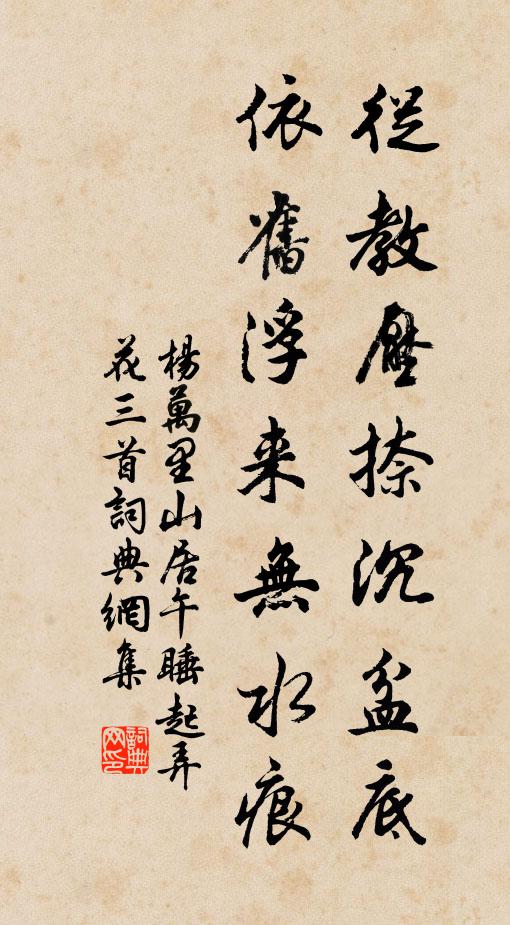 從教壓捺沉盆底
依舊浮来無水痕
楊萬里山居午睡起弄
花三首詞典網集
詞典
网印